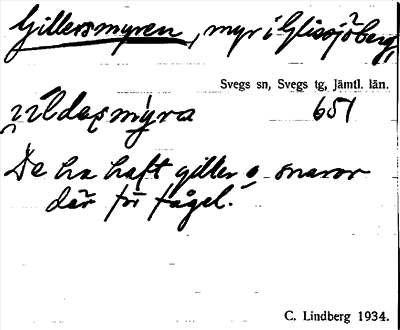 Gillersmyren, myr i Glissjöberg,
Svegs sn, Svegs tg, Jämtl. län.
651
De ha haft giller o. snaror
där för fågel.
C. Lindberg 1934.